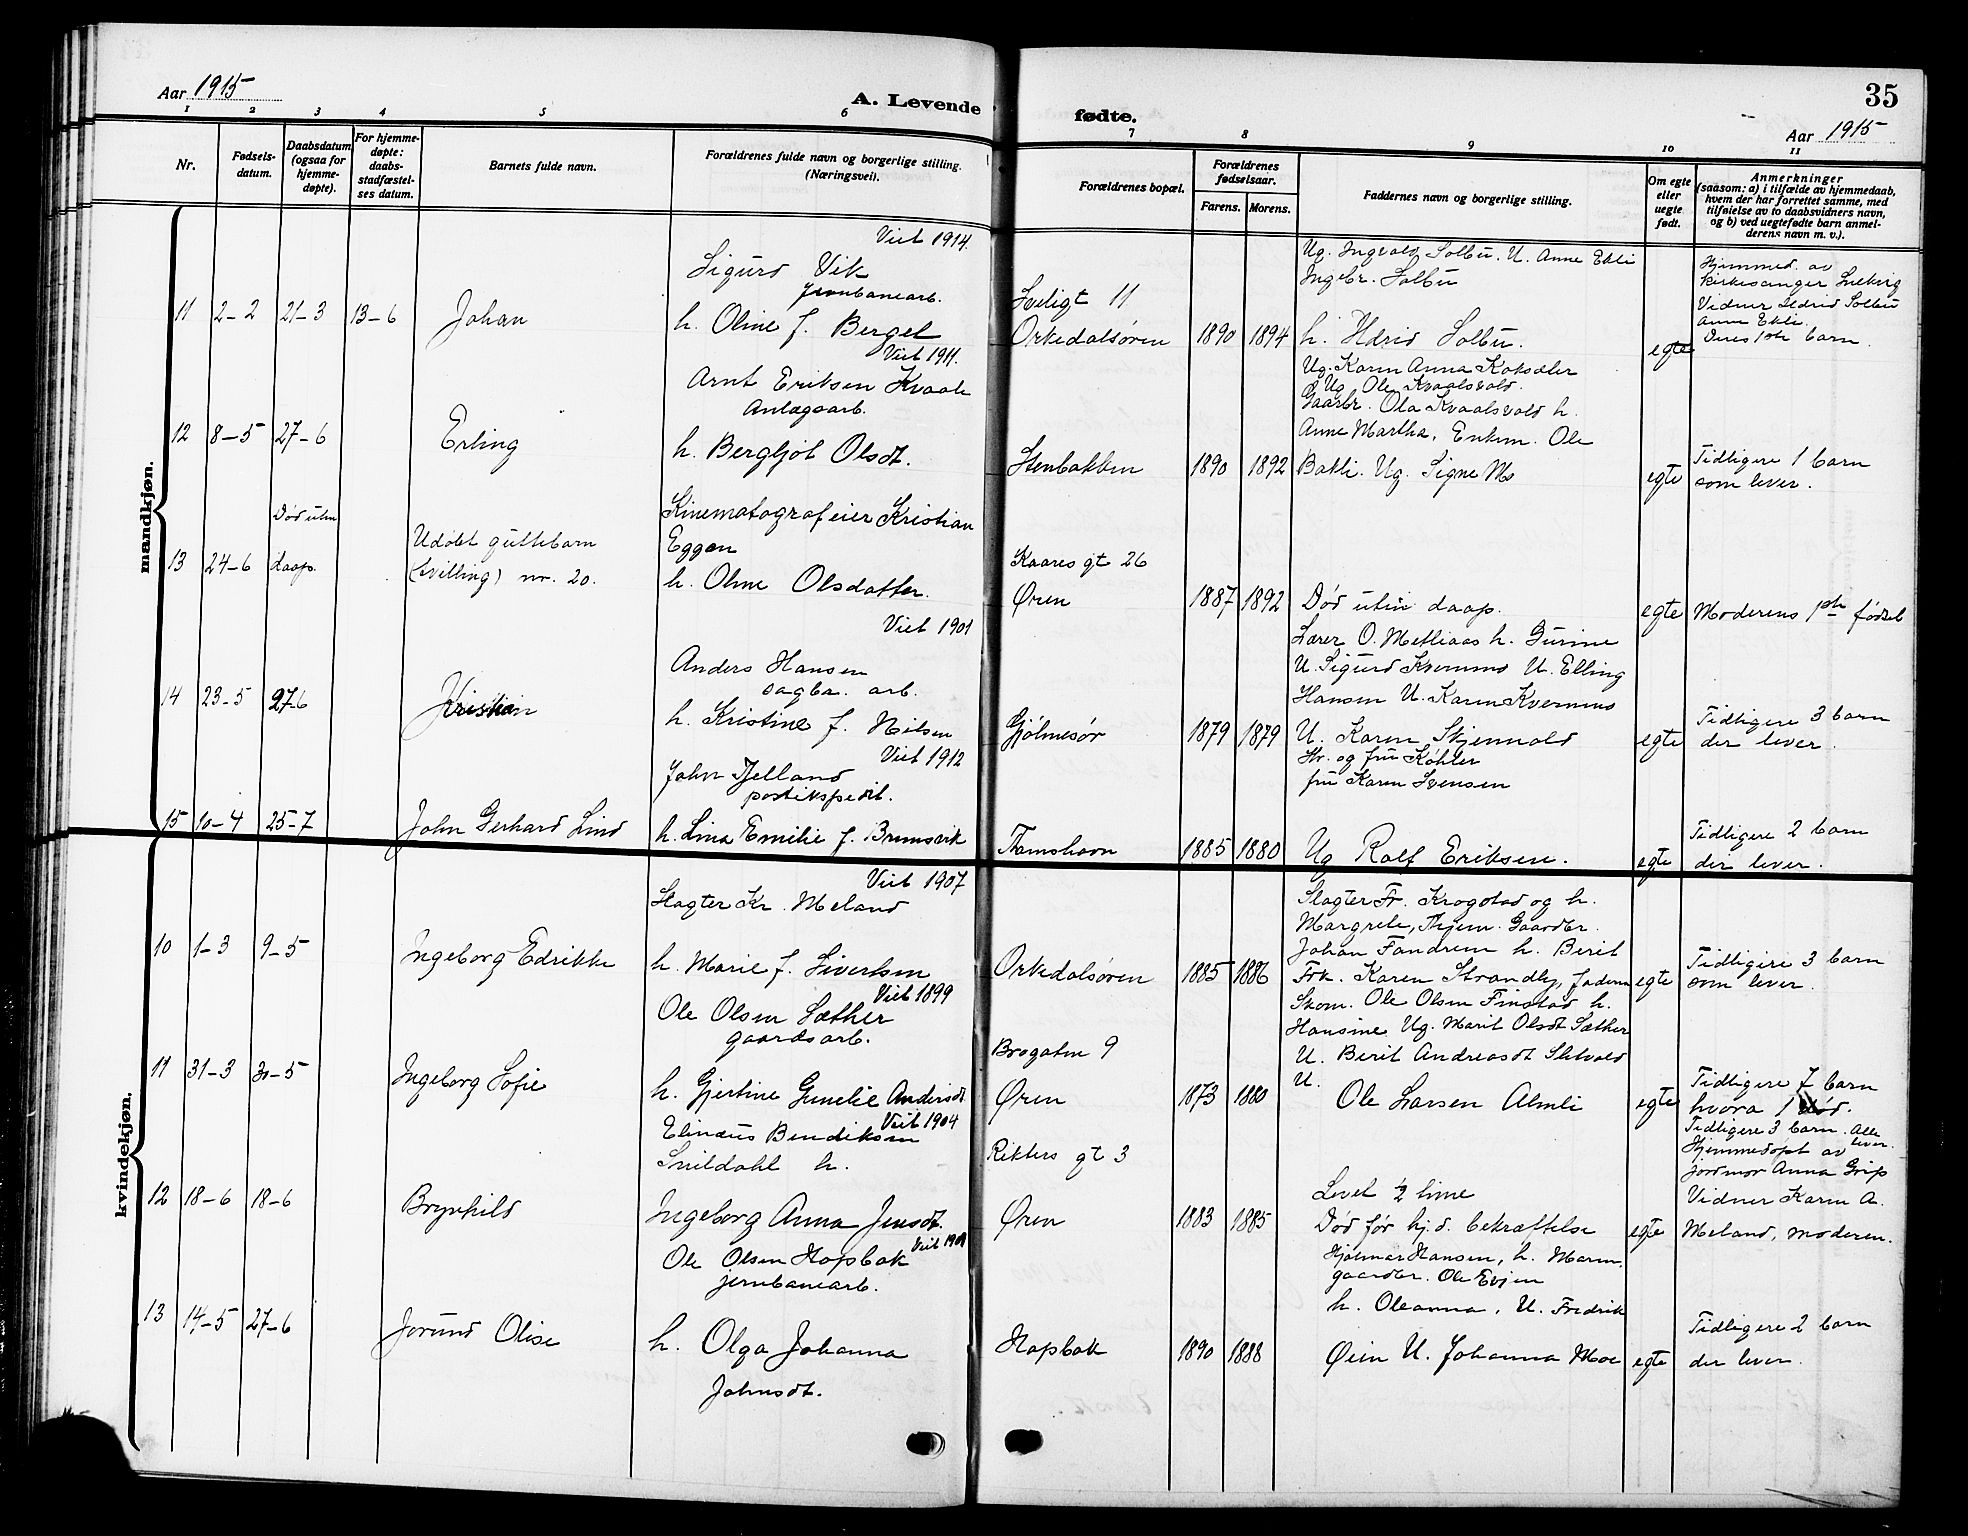 Aar 1915
A. Levende
1 2 3 4 5 6
Nr.
Fødsels-
datum.
Daabsdatum
(ogsaa for
hjemme-
døpte).
For hjemme-
døpte:
daabs-
stadfæstel-
ses datum.
Barnets fulde navn.
Forældrenes fulde navn og borgerlige stilling.
(Næringsvei).
mandkjøn.
Viet 1914.
Sigurd Vik
jernbanearb.
11 2-2 21-3 13-6 Johan h. Oline f. Bergel
Viet 1911.
Arnt Eriksen Kvaale
Anlægsarb.
12 8-5 27-6 Erling h. Bergljot Olsdt.
Kinematografeier Kristian
Død uten
Udøbt guttebarn Eggen
13 24-6 daap. (tvilling) nr. 20. h. Oline Olsdatter.
Viet 1901
Anders Hansen
sagbr. arb.
14 23-5 27-6 Kristian h. Kristine f. Nilsen
Viet 1912
John Tjelland
postekspedit.
15 10-4 25-7 John Gerhard Lind h. Lina Emilie f. Brunsvik
kvindekjøn.
Viet 1907
Slagter Kr. Meland
10 1-3 9-5 Ingeborg Edrikke h. Marie f. Sivertsen
Viet 1899
Ole Olsen Sæther
gaardsarb.
11 31-3 30-5 Ingeborg Sofie h. Gjertine Gunelie Andersdt.
Viet 1904
Elinæus Bendiksen
Snildahl h.
12 18-6 18-6 Brynhild Ingeborg Anna Jensdt.
Ole Olsen Hopbak
jernbanearb.
13 14-5 27-6 Jorund Olise h. Olga Johanna
Johnsdt.
35
fødte.
Aar 1915
7 8 9 10 11
Forældrenes bopæl.
Forældrenes
fødselsaar.
Farens. Morens.
Faddernes navn og borgerlige stilling.
Om egte
eller
uegte
født.
Anmerkninger
(saasom: a) i tilfælde av hjemmedaab,
hvem der har forrettet samme, med
tilføielse av to daabsvidners navn,
og b) ved uegtefødte barn anmel-
derens navn m. v.).
Ug. Ingvald Solbu. U. Anne Ekli
Ingebr. Solbu
Hjemmed. av
kirkesanger
Vidner Ildrid Solbu
Anne Ekli.
Orkedalsøren 1890 1894 h. Ildrid Solbu. egte Deres 1ste barn.
Ug. Karen Anna
Ug Ole Kvaalsvold.
Gaarbr. Ola Kvaalsvold h.
Anne Martha, Enkem. Ole
Stenbakken 1890 1892 Bakli. Ug. Signe Mo egte Tidligere 1 barn
som lever.
Kaares gt 26
Øren 1887 1892 Død uten daap. egte Moderens 1ste fødsel
Lærer O. Metliaas h. Gurine
U. Sigurd Kvernmo U. Elling
Hansen U. Karen Kvernmo
Gjølmesør 1879 1879 U. Karen Skjenvald egte Tidligere 3 barn
der lever.
Hr. og fru Køhler
fru Karen Svensen
Thamshavn 1885 1880 Ug Rolf Eriksen. egte Tidligere 2 barn
der lever.
Slagter Fr. Krogstad og h.
Margrete, Gaardbr.
Johan Fandrem h. Berit
Orkedalsøren 1885 1886 Frk. Karen Strandby, faderen egte Tidligere 3 barn
som lever.
Skom. Ole Olsen Finstad h.
Hansine Ug. Marit Olsdt Sæther
Brogaten 9 U. Berit Andreasdt
U.
Øren 1873 1880 Ole Larsen Almli egte Tidligere 7 barn
hvora 1 død.
Tidligere 3 barn. Alle
lever.
Rikters gt 3
Hjemmedøpt av
jordmor Anna Grip
Levet 1/2 time Vidner Karen A.
Øren 1883 1885 Død før hj.d. bekræftelse egte Meland, moderen.
Hjalmar Hansen, h. Maren,
gaardbr. Ole Evjen
h. Oleanna, U. Fredrik
Hopbak 1890 1888 Øien U. Johanna Moe egte Tidligere 2 barn
der lever.